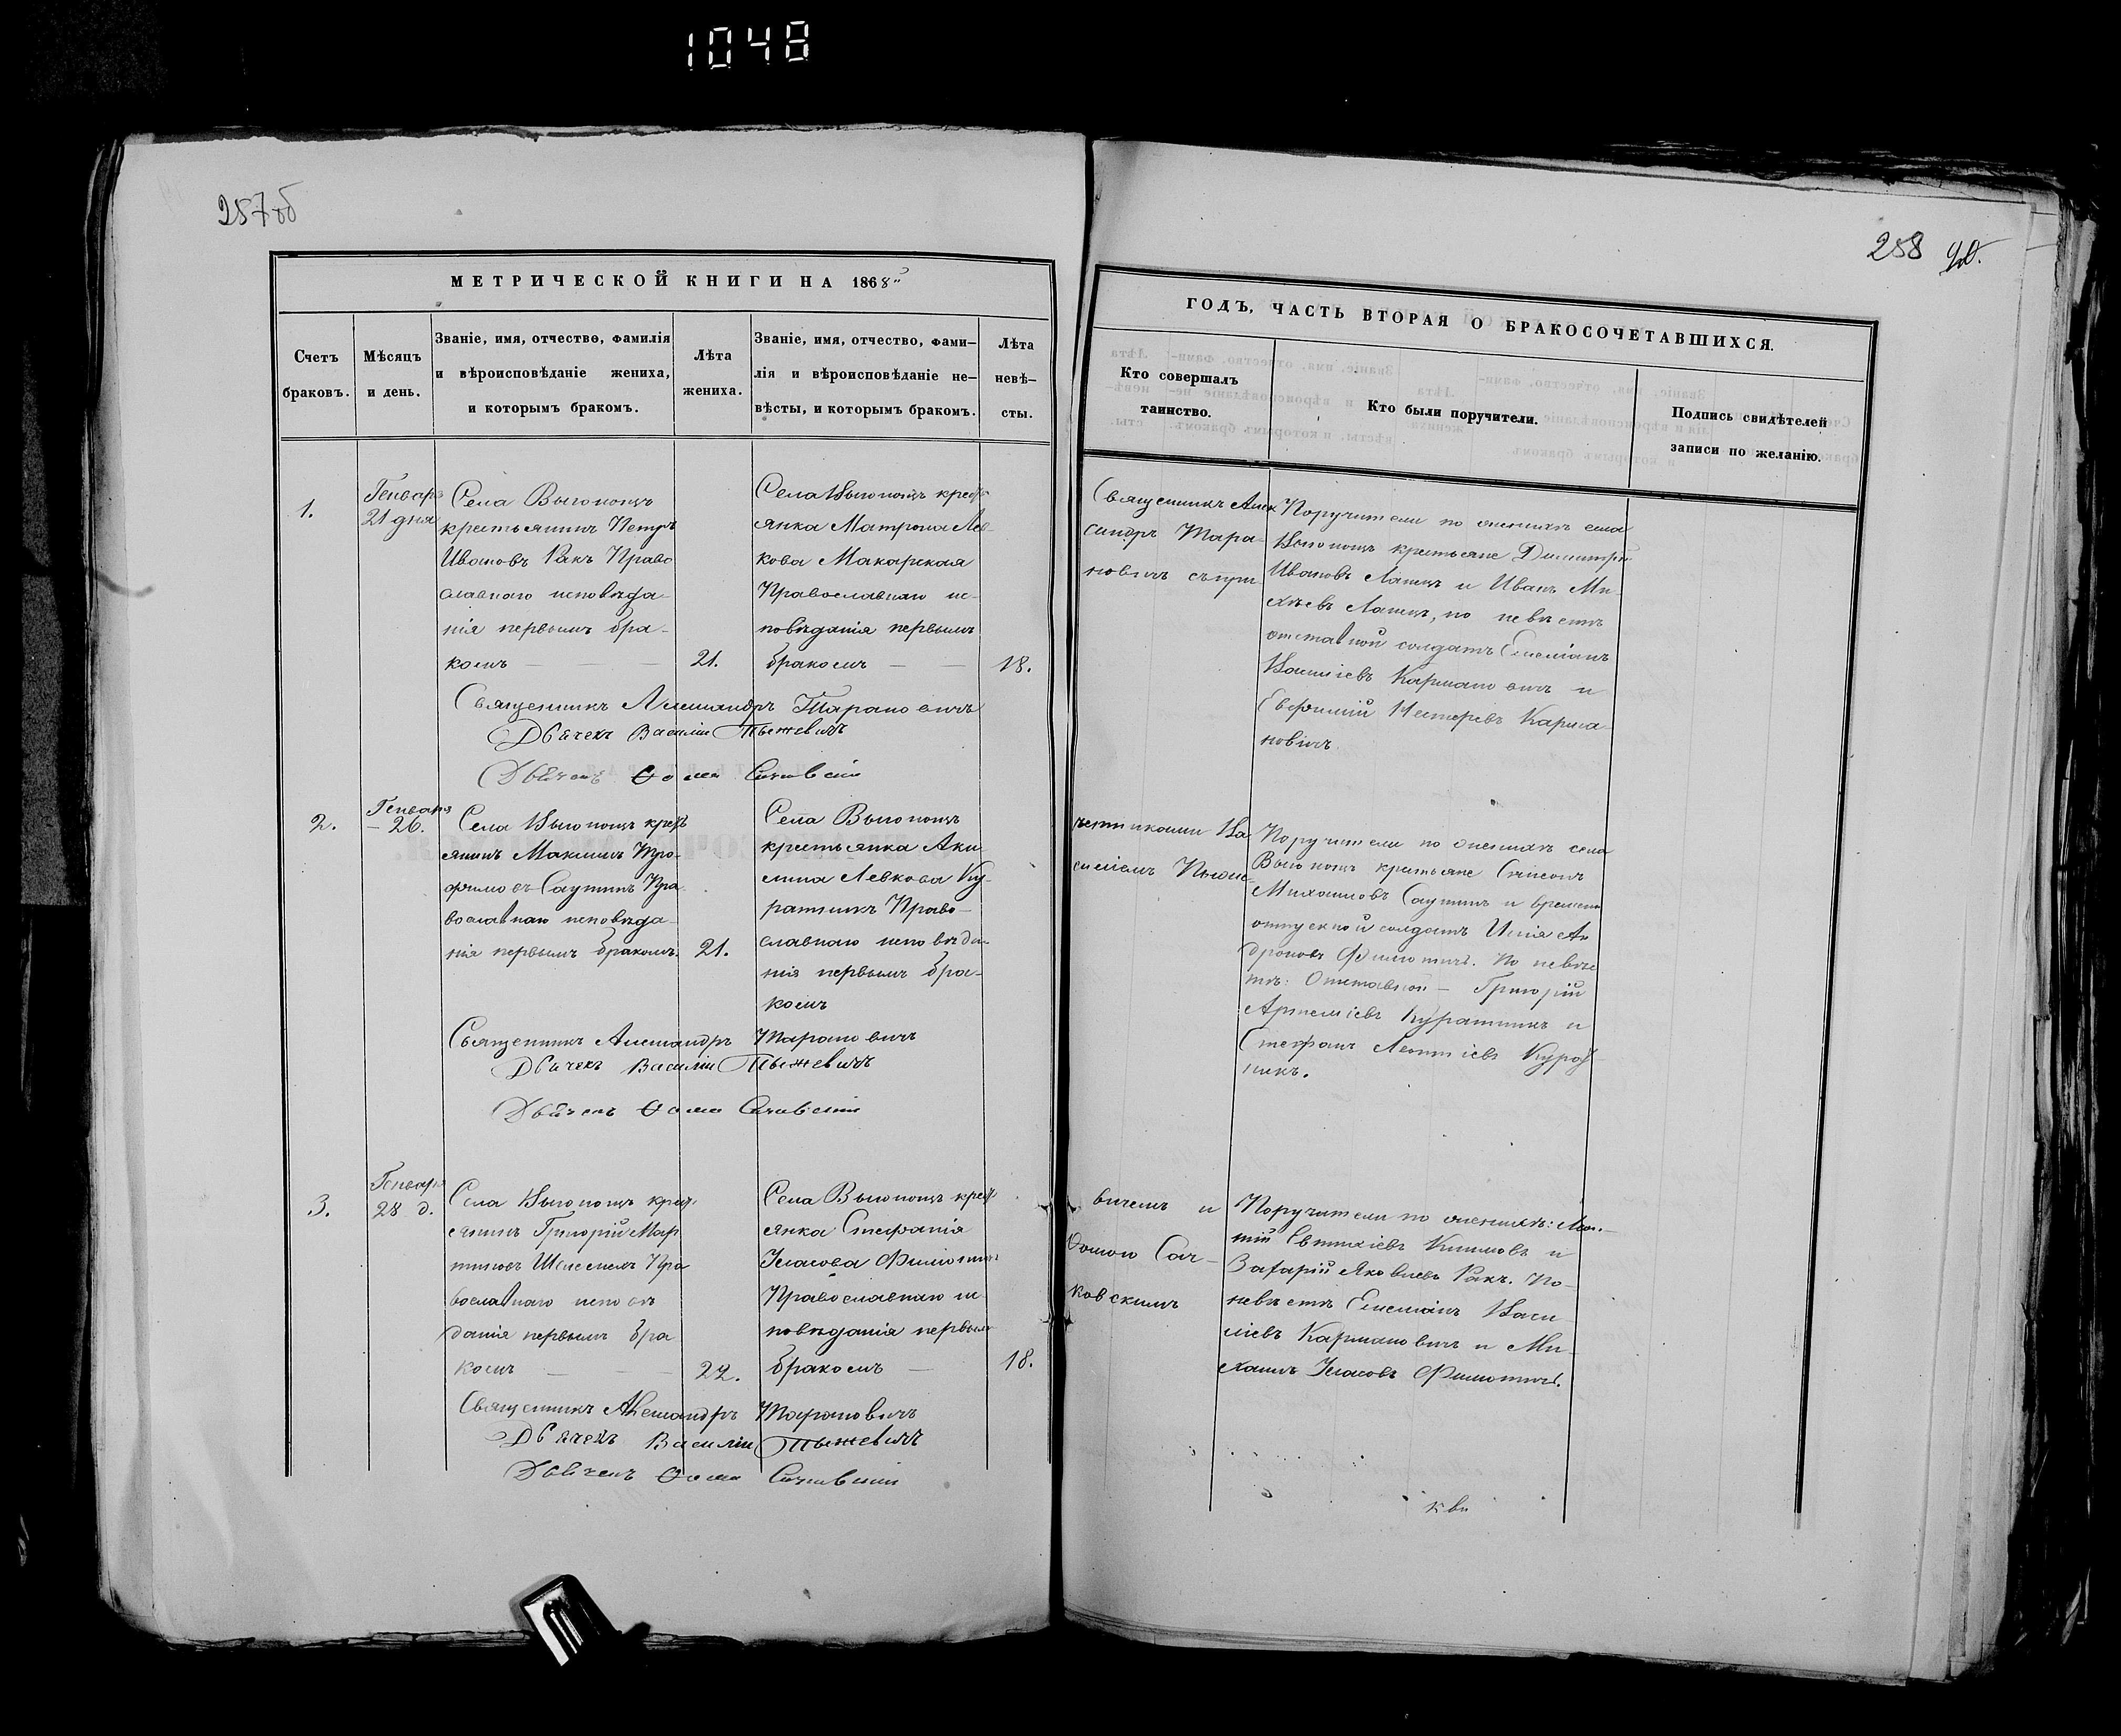 1048
257об
258
МЕТРИЧЕСКОЙ КНИГИ НА 1868
Счетъ браковъ.
Мѣсяцъ и день.
Званіе, имя, отчество, фамилія
и вѣроисповѣданіе жениха,
и которымъ бракомъ.
Лѣта
жениха.
Званіе, имя, отчество, фами–
лія и вѣроисповѣданіе не–
вѣсты, и которымъ бракомъ.
Лѣта
невѣ–
сты.
1.
Генваря
21 дня
Села Выгонощъ
крестьянинъ Петръ
Ивановъ Ракъ Право
славнаго исповѣда-
нія первымъ бра-
комъ
21.
Села Выгонощъ крест
янка Матрона Лев-
кова Макарская
Православнаго ис-
повѣданія первымъ
бракомъ
18.
Священникъ Александръ Тарановичъ
Дьячекъ Василій Пыжевичъ
Дьячекъ Ѳома
2.
Генваря
26.
Села Выгонощъ крест
янинъ Максимъ Тро-
фимовъ Саутинъ Пра
вославнаго исповѣда-
нія первымъ бракомъ.
21.
Села Выгонощъ
крестьянка Аки
лина Левкова Ку-
ратникъ Право-
славнаго исповѣда-
нія первымъ бра-
комъ
Священникъ Александръ Тарановичъ
Дьячекъ Василій Пыжевичъ
Дьячекъ Ѳома
3.
Генваря
28 д.
Села Выгонощъ крест
янинъ Григорій Мар
Пра
вославнаго исповѣ
данія первымъ бра
комъ
22.
Села Выгонощъ крест
янка Стефанія
Власова
Православнаго ис
повѣданія первым
бракомъ
18.
Священникъ Александръ Тарановичъ
Дьячекъ Василій Пыжевичъ
Дьячекъ Ѳома
ГОДЪ, ЧАСТЬ ВТОРАЯ О БРАКОСОЧЕТАВШИХСЯ.
Кто совершалъ
таинство.
Кто были поручители.
Подпись свидѣтелей
записи по желанію.
Священникъ Алек
сандръ Тара-
новичъ съ при
четниками Ва
силіемъ Пыже-
вичемъ и
Ѳомою Сач-
ковскимъ
Поручители по женихѣ села
Выгонощъ крестьяне Димитрій
Ивановъ и Иванъ Ми-
хѣевъ по невѣстѣ
отставной солдатъ Емеліанъ
Василіевъ Кармановичъ и
Евфимій Нестеровъ Карма-
новичъ.
Поручители по женихѣ села
Выгонощъ крестьяне Симеонъ
Михаиловъ Саутинъ и временно
отпускной солдатъ Илія Ан
дроновъ По невѣс
тѣ: Отставной – Григорій
Артеміевъ Куратникъ и
Стефанъ Леонтіевъ Курат-
никъ.
Поручители по женихѣ:
и
Захарій Яковлевъ Ракъ. По-
невѣстѣ Емеліанъ Васи
ліевъ Кармановичъ и Ми-
хаилъ Власовъ